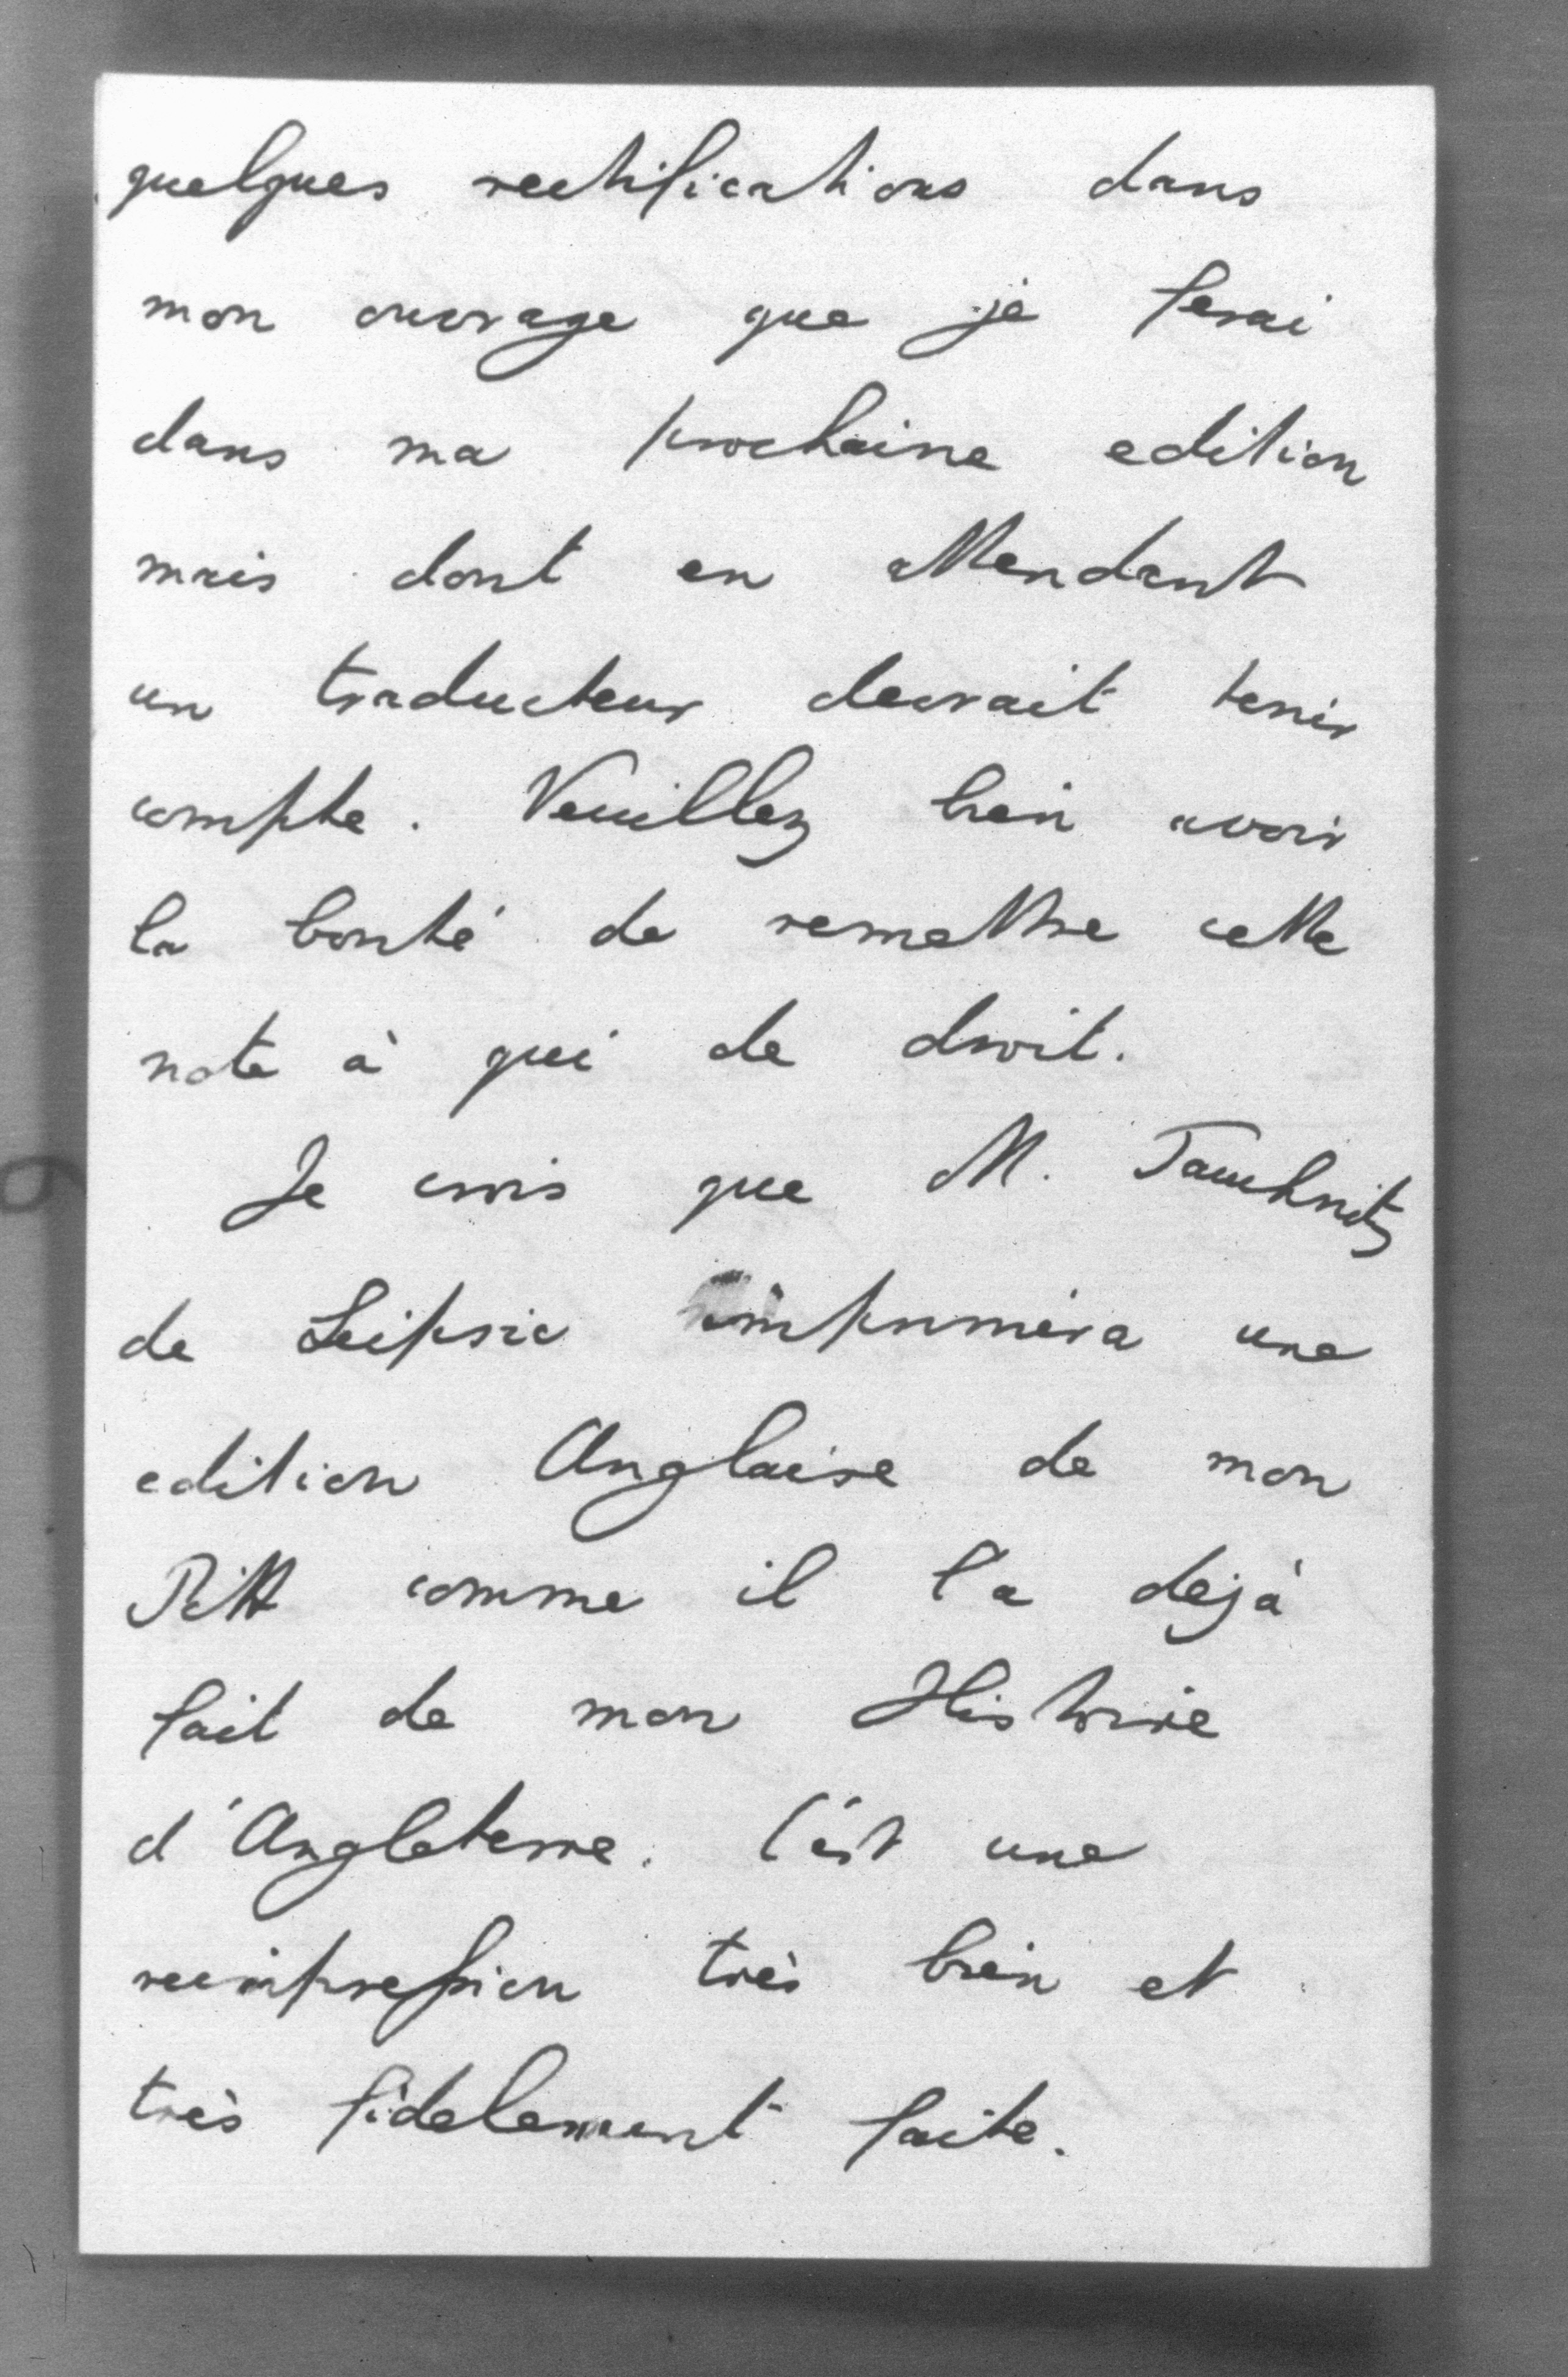 quelques rectifications dans
mon ouvrage que je ferai
dans ma prochaine edition
mais dont en attendant
un traducteur devrait tenir
compte. Veuillez bien avoir
la bonté de remettre cette
note à qui de droit.
Je crois que M. Tauchnitz
de Leipsic imprimera une
edition Anglaise de mon
Pitt comme il l'a dejà
fait de mon Histoire
d'Angleterre. C'est une
reimpression très bien et
très fidelement faite.